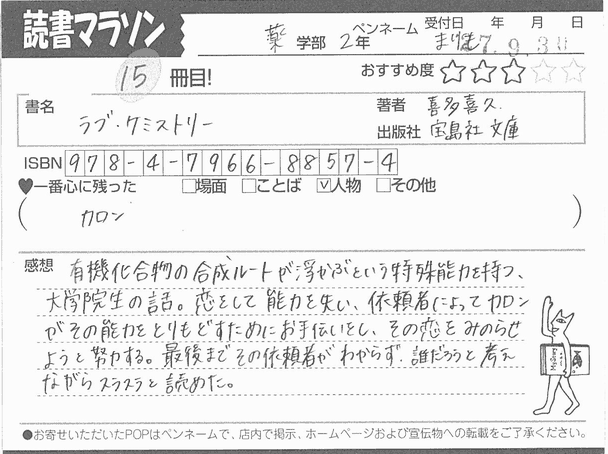 読書マラソン
薬 学部 2年 ペンネーム まりも 受付日 年 月 日
7. 9. 30
15 冊目! おすすめ度 ☆☆☆☆☆
書名 ラブ・ケミストリー
著者 喜多喜久
出版社 宝島社文庫
ISBN 978-4-7966-8857-4
♥一番心に残った □場面 □ことば ☑人物 □その他
( カロン )
感想 有機化合物の合成ルートが浮かぶという特殊能力を持つ、
大学院生の話。恋をして能力を失い、依頼者によってカロン
がその能力をとりもどすためにお手伝いをし、その恋をみのらせ
ようと努力する。最後までその依頼者がわからず、誰だろうと考え
ながらスラスラと読めた。
●お寄せいただいたPOPはペンネームで、店内で掲示、ホームページおよび宣伝物への転載をご了承ください。